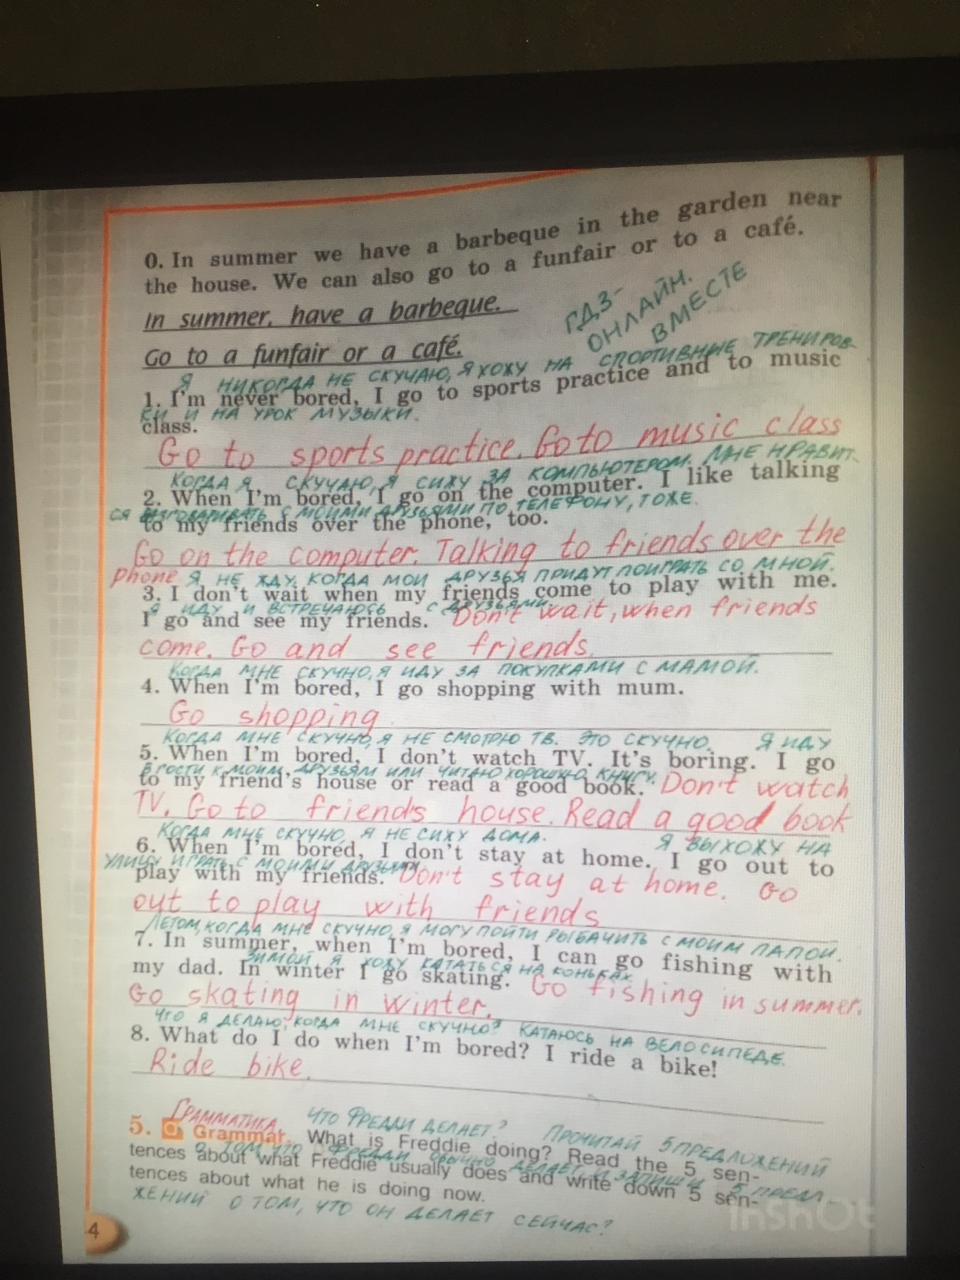 0. In summer we have a barbeque in the garden near
the house. We can also go to a funfair or to a café.
In summer, have a barbeque.
Go to a funfair or a café.
ГДЗ-
ОНЛАЙН.
ВМЕСТЕ
Я НИКОГДА НЕ СКУЧАЮ, Я ХОЖУ НА СПОРТИВНЫЕ ТРЕНИРОВ-
1. I'm never bored, I go to sports practice and to music
КИ И НА УРОК МУЗЫКИ.
class.
Go to sports practice. Go to music class
КОГДА Я СКУЧАЮ, Я СИЖУ ЗА КОМПЬЮТЕРОМ. МНЕ НРАВИТ-
2. When I'm bored, I go on the computer. I like talking
СЯ РАЗГОВАРИВАТЬ С МОИМИ ДРУЗЬЯМИ ПО ТЕЛЕФОНУ, ТОЖЕ.
to my friends over the phone, too.
Go on the computer. Talking to friends over the
phone
Я НЕ ЖДУ, КОГДА МОИ ДРУЗЬЯ ПРИДУТ ПОИГРАТЬ СО МНОЙ.
3. I don't wait when my friends come to play with me.
Я ИДУ И ВСТРЕЧАЮСЬ С ДРУЗЬЯМИ.
I go and see my friends. Don't wait, when friends
come. Go and see friends.
КОГДА МНЕ СКУЧНО, Я ИДУ ЗА ПОКУПКАМИ С МАМОЙ.
4. When I'm bored, I go shopping with mum.
Go shopping.
КОГДА МНЕ СКУЧНО, Я НЕ СМОТРЮ ТВ. ЭТО СКУЧНО. Я ИДУ
5. When I'm bored, I don't watch TV. It's boring. I go
В ГОСТИ К МОИМ ДРУЗЬЯМ ИЛИ ЧИТАЮ ХОРОШУЮ КНИГУ.
to my friend's house or read a good book. Don't watch
TV. Go to friends house. Read a good book
КОГДА МНЕ СКУЧНО, Я НЕ СИЖУ ДОМА. Я ВЫХОЖУ НА
6. When I'm bored, I don't stay at home. I go out to
УЛИЦУ ИГРАТЬ С МОИМИ ДРУЗЬЯМИ
play with my friends. Don't stay at home. Go
out to play with friends
ЛЕТОМ, КОГДА МНЕ СКУЧНО, Я МОГУ ПОЙТИ РЫБАЧИТЬ С МОИМ ПАПОЙ.
7. In summer, when I'm bored, I can go fishing with
ЗИМОЙ Я ХОЖУ КАТАТЬСЯ НА КОНЬКАХ
my dad. In winter I go skating. Go fishing in summer.
Go skating in winter.
ЧТО Я ДЕЛАЮ, КОГДА МНЕ СКУЧНО? КАТАЮСЬ НА ВЕЛОСИПЕДЕ.
8. What do I do when I'm bored? I ride a bike!
Ride bike.
ГРАММАТИКА. ЧТО ФРЕДДИ ДЕЛАЕТ? ПРОЧИТАЙ 5 ПРЕДЛОЖЕНИЙ
5. Grammar. What is Freddie doing? Read the 5 sen-
О ТОМ ЧТО ФРЕДДИ ОБЫЧНО ДЕЛАЕТ И ЗАПИШИ 5 ПРЕДЛ
tences about what Freddie usually does and write down 5 sen-
tences about what he is doing now.
ЖЕНИЙ О ТОМ, ЧТО ОН ДЕЛАЕТ СЕЙЧАС?
4
InshOt